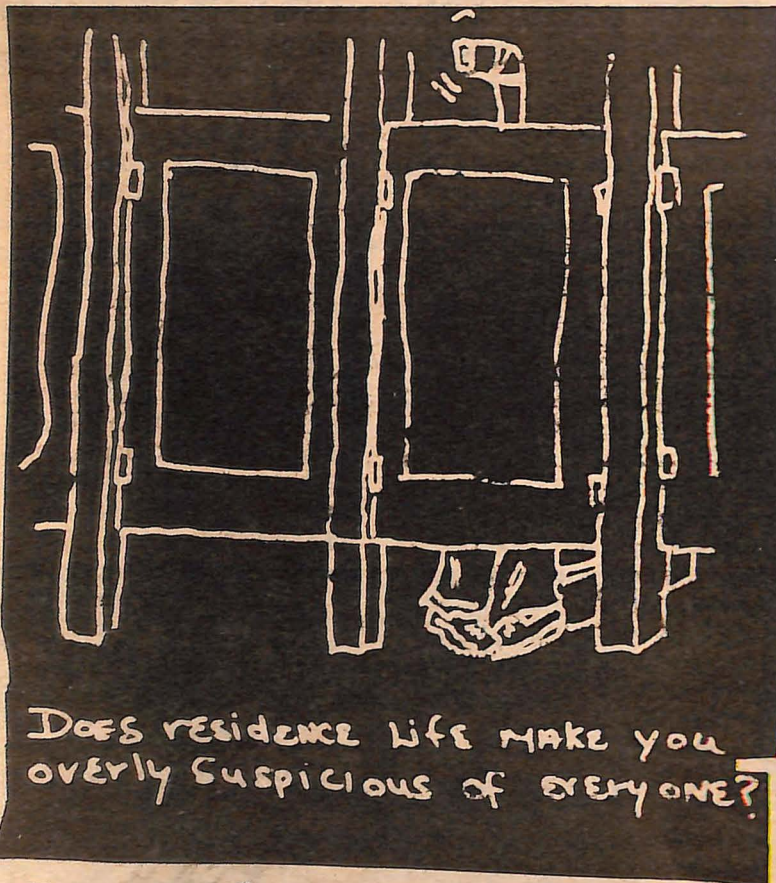 Does residence life make you
overly suspicious of everyone?